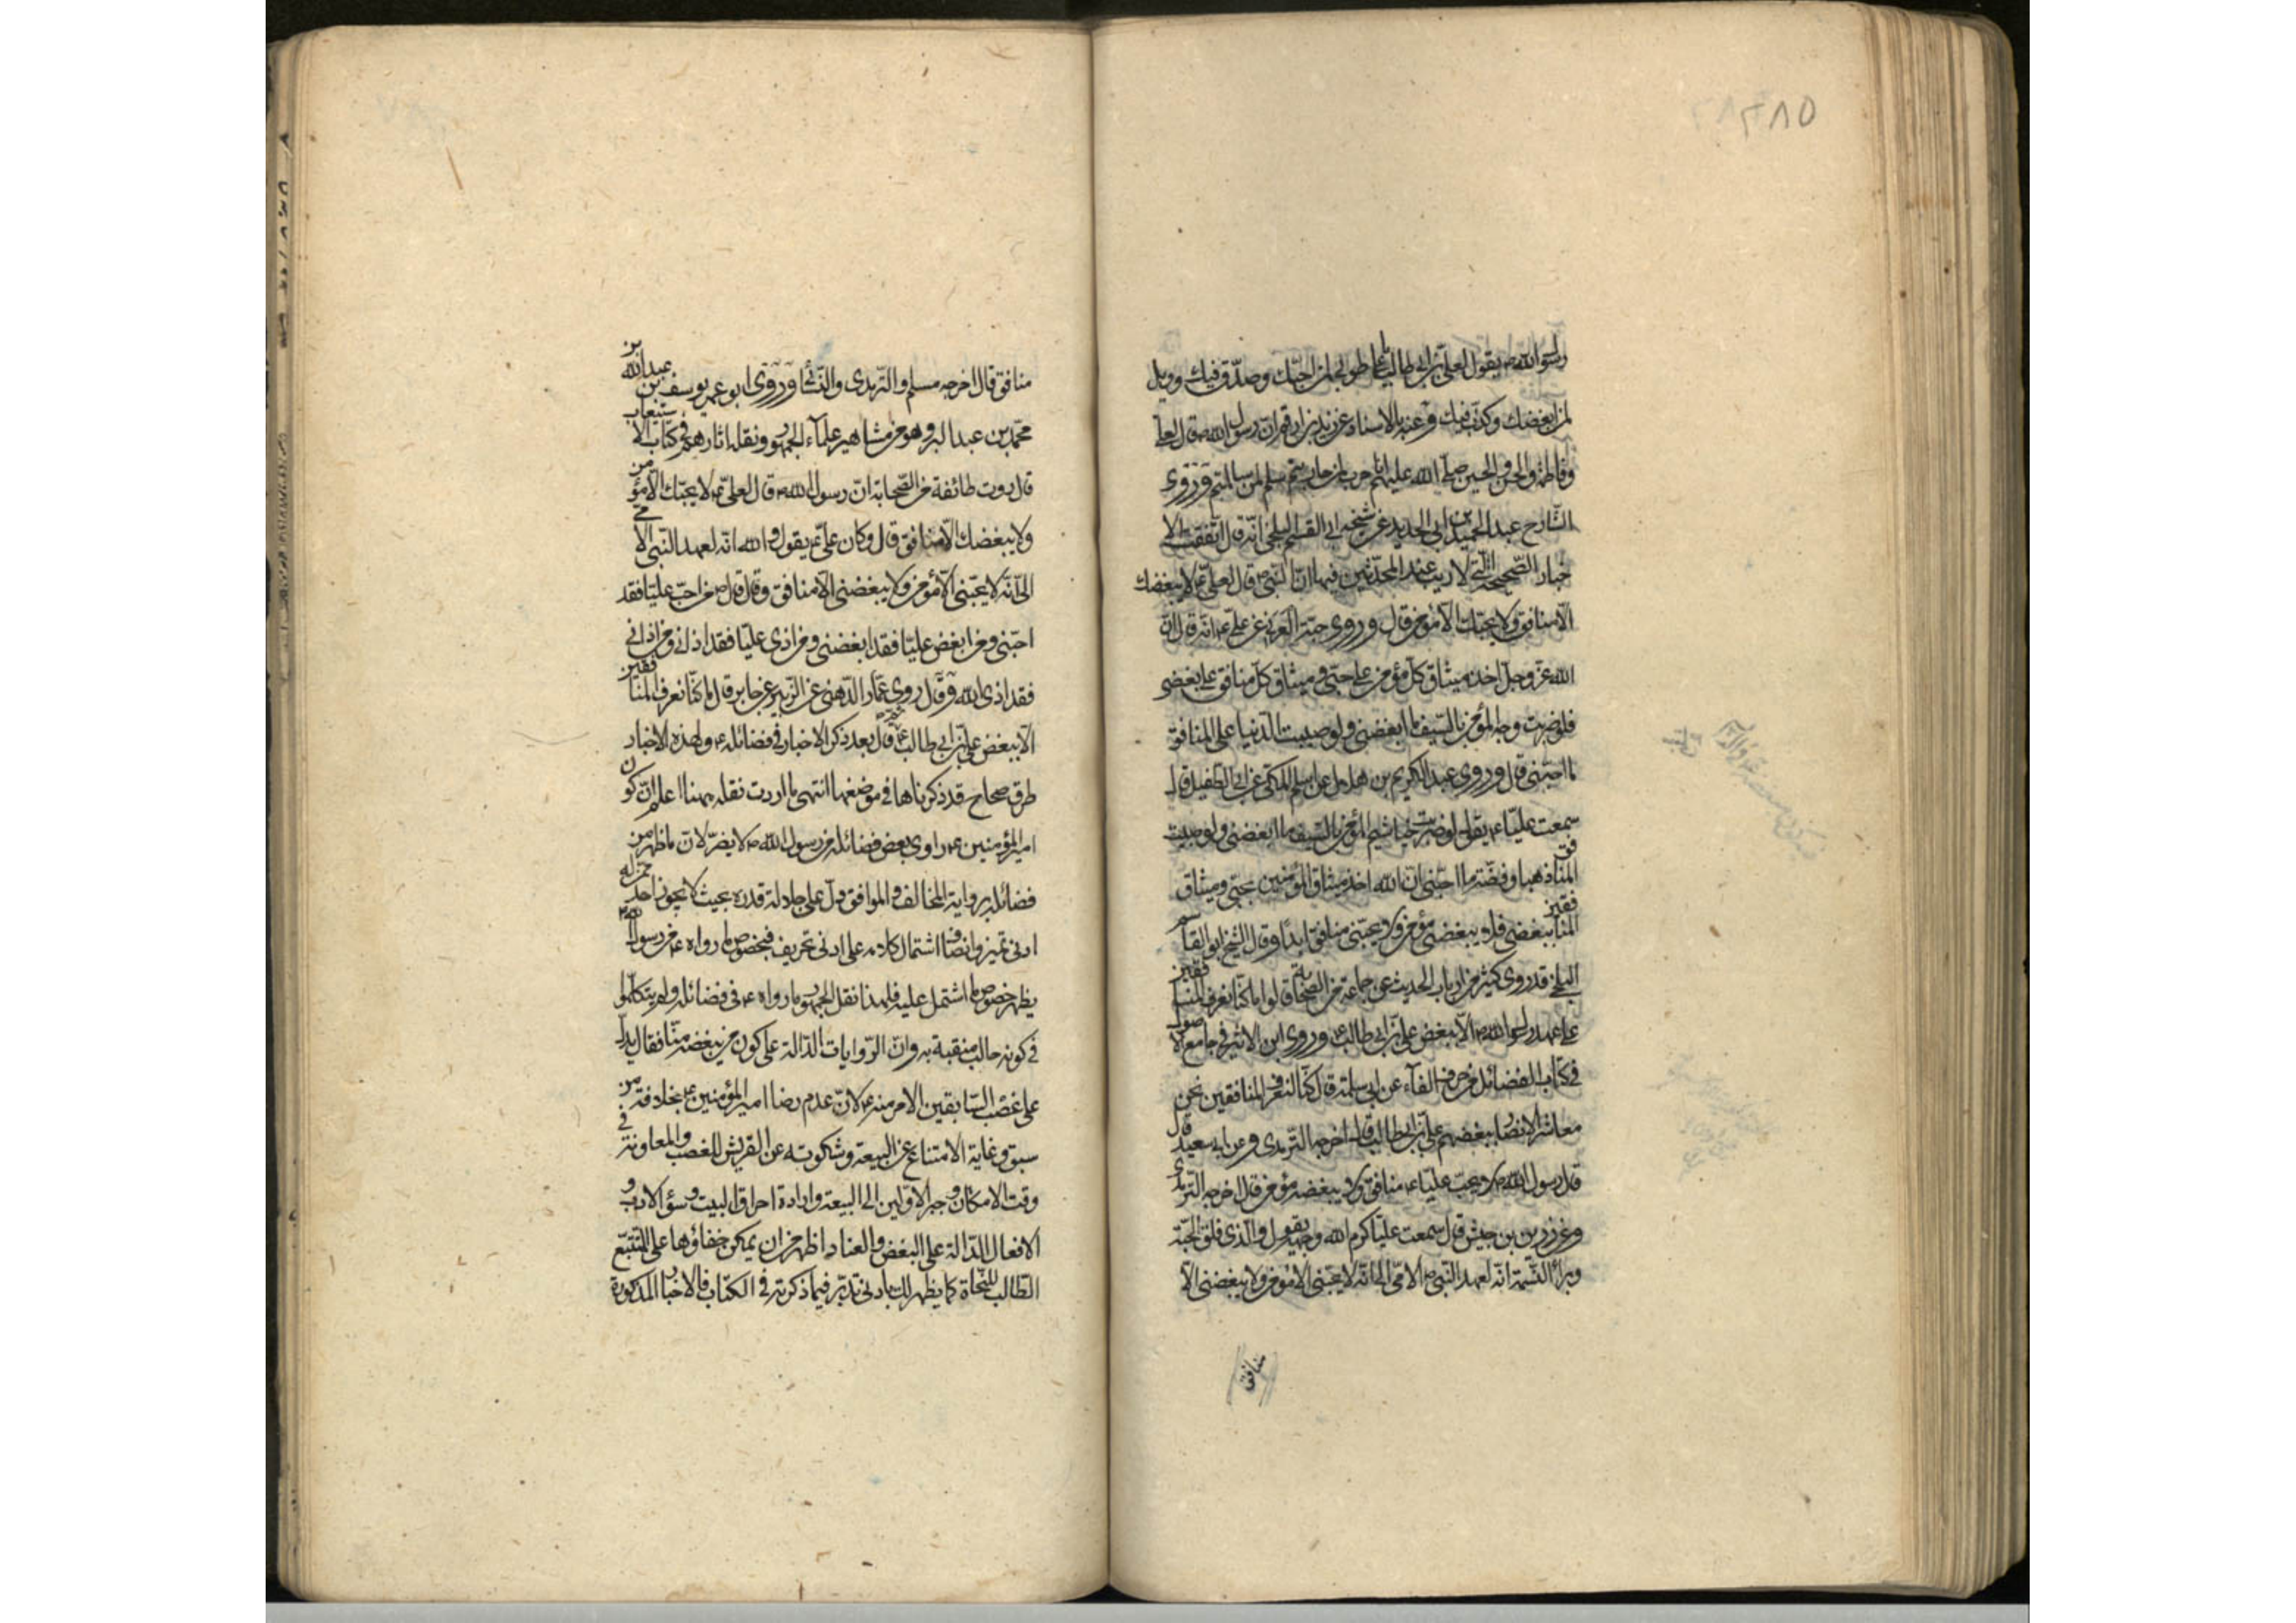 ٢٨٥
رسول الله ص يقول لعلي بن ابي طالب ع طوبى لمن احبّك وصدّق فيك وويل
لمن ابغضك وكذب فيك وعنه بالاسناد عن زيد بن ارقم ان رسول الله ص قال لعلي
وفاطمة والحسن والحسين صلى الله عليهم انا حرب لمن حاربتم سلم لمن سالمتم وروى
الشارح عبد الحميد بن ابى الحديد عن شيخه ابى القسم البلخي انه قال اتفقت الا
خبار الصّحيحة التي لا ريب عند المحدّثين فيها ان النبي ص قال لعلي ع لا يبغضك
الّا منافق ولا يحبّك الّا مؤمن قال وروى حبة العرني عن علي ع انه قال ان
الله عزّ وجلّ اخذ ميثاق كل مؤمن على حبّي وميثاق كل منافق على بغضي
فلو ضربت وجه المؤمن بالسّيف ما ابغضني ولو صببت الدّنيا على المنافق
ما احبّني قال وروى عبد الكريم بن هلال عن اسلم المكي عن ابي الطفيل قال
سمعت عليّا ع يقول لو ضربت خياشيم المؤمن بالسّيف ما ابغضني ولو صببت على
المنافق ذهبا وفضّة ما احبّني ان الله اخذ ميثاق المؤمنين بحبّي وميثاق
المنافقين ببغضي فلا يبغضني مؤمن ولا يحبّني منافق ابدا وقال الشيخ ابو القاسم
البلخي قد روى كثير من ارباب الحديث عن جماعة من الصّحابة قالوا ما كنّا نعرف المنافقين
على عهد رسول الله ص الّا ببغض علي بن ابي طالب ع وروى ابن الاثير في جامع الاصول
في كتاب الفضائل من حرف الفآء عن ابي سلمة قال كنّا لنعرف المنافقين نحن
معاشر الانصار ببغضهم علي بن ابي طالب قال اخرجه الترمدى وعن ابي سعيد قال
قال رسول الله ص لا يحبّ عليّا ع منافق ولا يبغضه مؤمن قال اخرجه الترمدى
وعن زر بن حبيش قال سمعت عليّا كرم الله وجهه يقول والذى فلق الحبّة
وبرأ النّسمة انه لعهد النّبي ص الامّي الى انّه لا يحبّني الّا مؤمن ولا يبغضني الّا
منافق
منافق قال اخرجه مسلم والترمدى والنّسائي وروى ابو عمر يوسف بن عبد الله بن
محمّد بن عبد البر وهو من مشاهير علمآء الجمهور ونقله اثارهم في كتاب الاستيعاب
قال روت طائفة من الصّحابة ان رسول الله ص قال لعلي ع لا يحبّك الّا مؤمن
ولا يبغضك الّا منافق قال وكان علي ع يقول والله انّه لعهد النّبي الامّي
الىّ انّه لا يحبّني الّا مؤمن ولا يبغضني الّا منافق وقال قال ص من احبّ عليّا فقد
احبّني ومن ابغض عليّا فقد ابغضني ومن اذى عليّا فقد اذاني ومن اذاني
فقد اذى الله وقال روى عمّار الدّهني عن الزّبير عن جابر قال ما كنّا نعرف المنافقين
الّا ببغض علي بن ابي طالب ع وقال بعد ذكر الاخبار في فضائله ع ولهذه الاخبار
طرق صحاح قد ذكرناها في موضعها انتهى ما اردت نقله هيهنا اعلم ان كون
امير المؤمنين ع راوى بعض فضائله من رسول الله ص لا يضرّ لان ما ظهر من
فضائله برواية المخالف والموافق دلّ على جلالة قدره بحيث لا يجوز احد ممن له
ادنى تميز وانصاف اشتمال كلامه على ادنى تحريف فبخصوص ما رواه ع من رسول الله ص
يظهر خصوص ما اشتمل عليه فلهذا نقل الجمهور ما رواه ع في فضائله ولم يتكلّموا
في كونه جالب منقبة به وان الرّوايات الدّالة على كون من يبغضه منافقا يدل
على غصب السّابقين الامر منه ع لان عدم رضا امير المؤمنين ع بخلافة من
سبق وغاية الامتناع عن البيعة وشكوته عن القريش للغصب والمعاونة في
وقت الامكان وجبر الاوّلين الى البيعة وارادة احراق البيت وسؤ الادب و
الافعال الدّالة على البغض والعناد اظهر من ان يمكن خفاؤها على المتتبّع
الطّالب للنّجاة كما يظهر لك بادنى تدبّر فيما ذكرته في الكتاب فالاخبار المذكورة